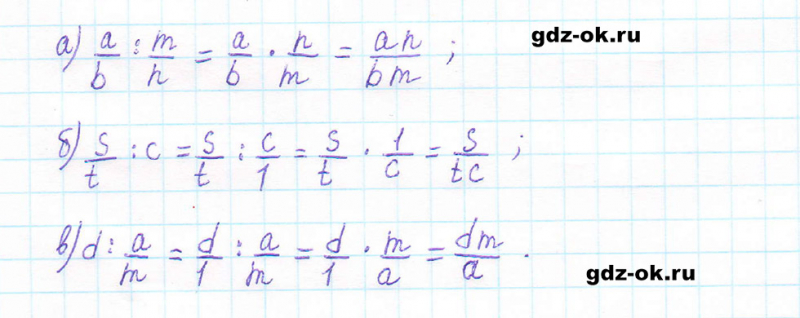 а) a/b : m/n = a/b · n/m = an/bm ; gdz-ok.ru
б) s/t : c = s/t : c/1 = s/t · 1/c = s/tc ;
в) d : a/m = d/1 : a/m = d/1 · m/a = dm/a .
gdz-ok.ru